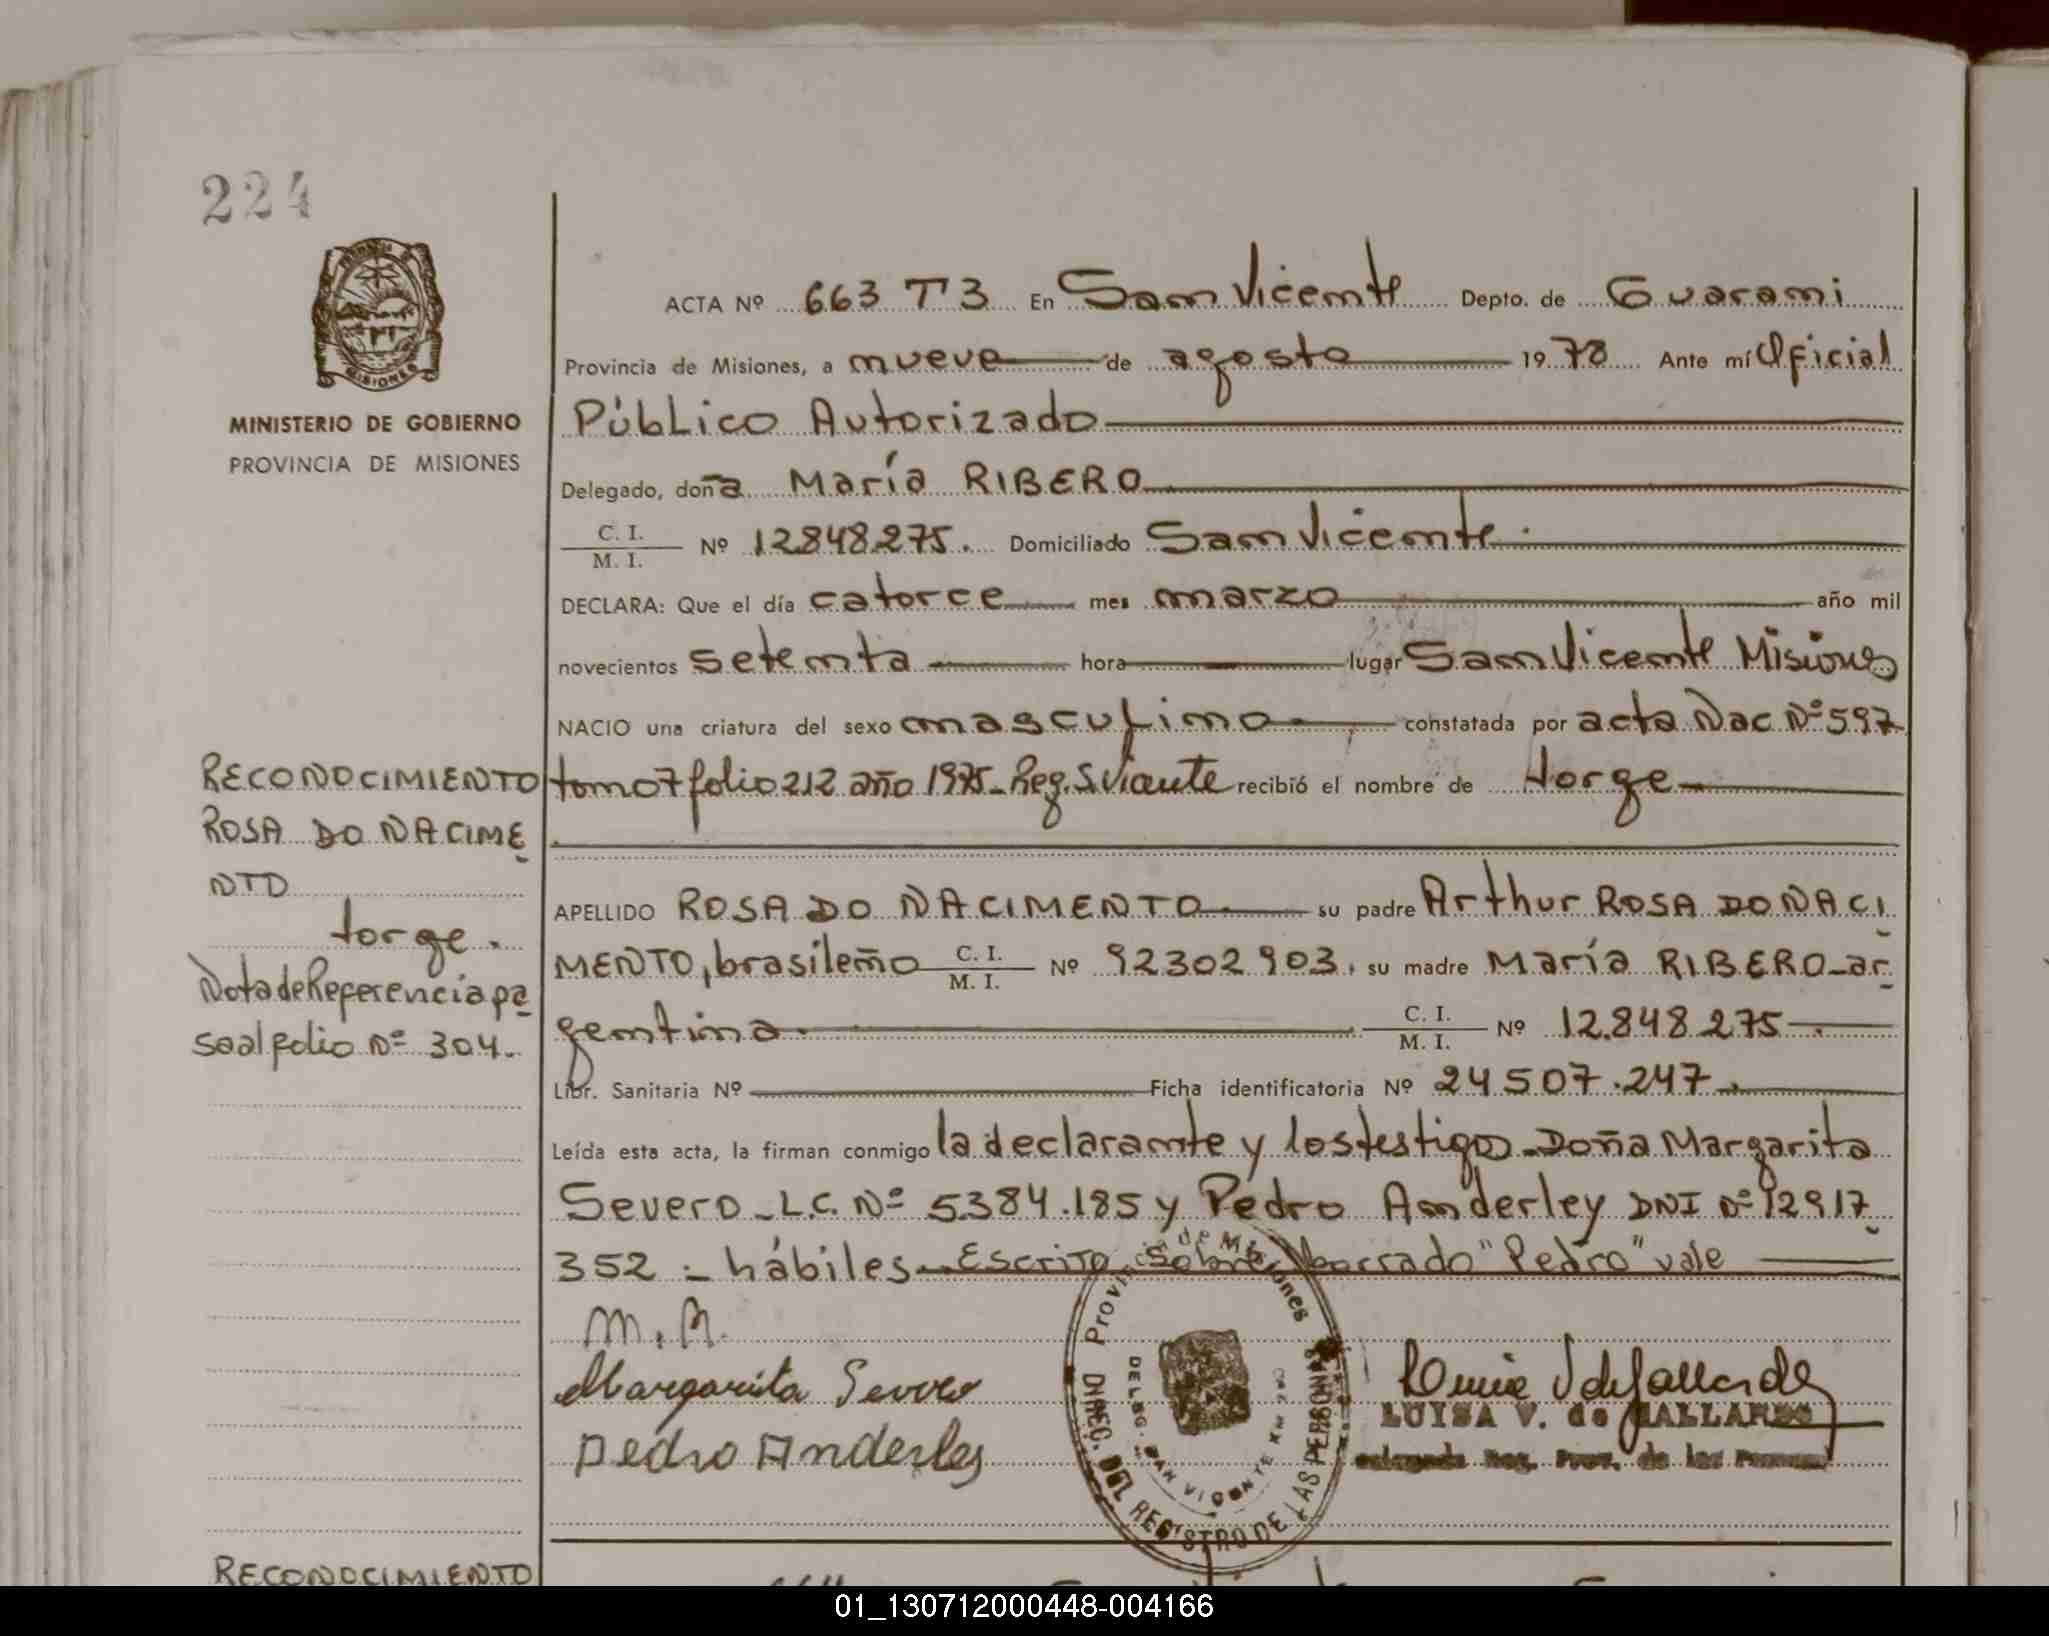 224
MISIONES
MINISTERIO DE GOBIERNO
PROVINCIA DE MISIONES
ACTA Nº 663 T3 En San Vicente Depto. de Guarani
Provincia de Misiones, a nueve de agosto 1978 Ante mí Oficial
Público Autorizado
Delegado, doña María RIBERO
C. I.
M. I. Nº 12848275. Domiciliado San Vicente.
DECLARA: Que el día catorce mes marzo año mil
novecientos setenta hora lugar San Vicente Misiones
NACIO una criatura del sexo masculino constatada por acta Nac Nº 597
tomo 7 folio 212 año 1975 - Reg. S. Vicente recibió el nombre de Jorge
APELLIDO ROSA DO NACIMENTO su padre Arthur ROSA DO NACI
MENTO, brasileño C. I. M. I. Nº 92302903, su madre María RIBERO - ar
gentina. C. I. M. I. Nº 12.848.275
Libr. Sanitaria Nº Ficha identificatoria Nº 24.507.247
Leída esta acta, la firman conmigo la declarante y los testigos - Doña Margarita
Severo - L.C. Nº 5384.185 y Pedro Anderley DNI Nº 12917
352 - hábiles - Escrito sobre borrado "Pedro" vale
RECONOCIMIENTO
ROSA DO NACIME
NTO
Jorge.
Nota de Referencia pa
sa al folio Nº 304.
M. R.
Margarita Severo
Pedro Anderley
Provincia de Misiones
DIREC. DEL REGISTRO DE LAS PERSONAS
DELEG. SAN VICENTE
LUISA V. de GALLARDO
Delegada Reg. Prov. de las Personas
RECONOCIMIENTO
01_130712000448-004166